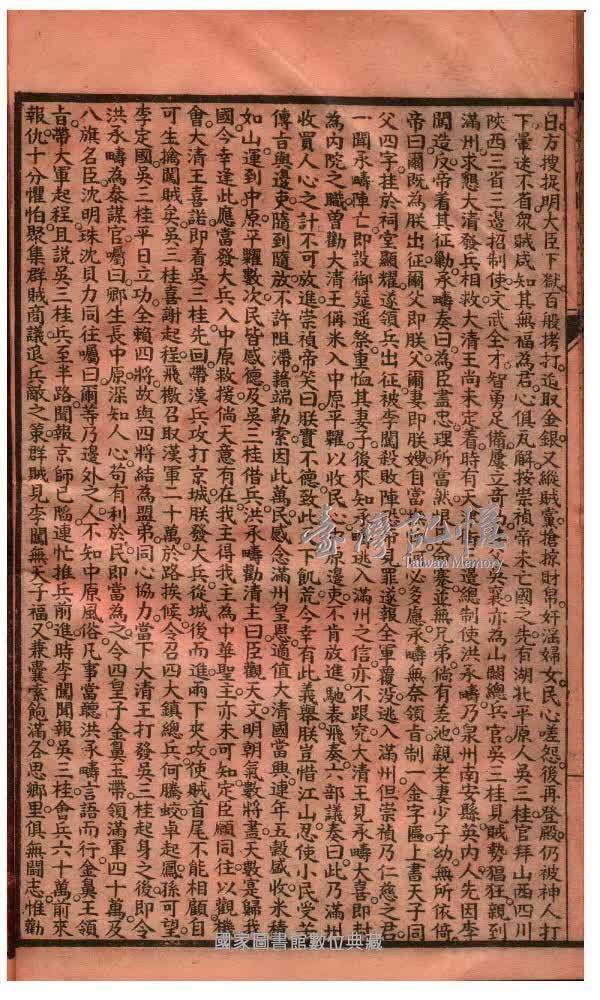 日方搜捉明大臣下獄百般拷打追取金銀又縱賊黨搶掠財帛奸淫婦女民心嗟怨後再登殿仍被神人打
下暈迷不省眾賊咸知其無福為君心俱瓦解按崇禎帝未亡國之先有湖北平原人吳三桂官拜山西四川
陝西三省三邊招制使文武全才智勇足備屢立奇父吳襄亦為山關總兵官吳三桂見賊勢猖狂親到
滿州求懇大清發兵相救大清王尚未定着時有天遣總制使洪承疇乃泉州南安縣英內人先因李
闖造反帝着其征勦承疇奏曰為臣盡忠理所當然恨並無兄弟倘有差池親老妻少子幼無所依倚
帝曰爾既為朕出征爾父即朕父爾妻即朕嫂自當必多慮承疇無奈領旨制一金字匾上書天子同
父四字挂於祠堂顯耀遂領兵出征被李闖殺敗陣帝見罪遂報全軍覆没逃入滿州但崇禎乃仁慈之君
一聞承疇陣亡即設御筵遥祭重恤其妻子後來知承逃入滿州之信亦不跟究大清王見承疇大喜即封
為内院之職曾勸大清王稱米入中原平糶以收民心原邊吏不肯放進馳表飛奏六部議奏曰此乃滿州
收買人心之計不可放進崇禎帝笑曰朕實不德致此下飢荒今幸有此義舉朕豈惜江山忍使小民受苦
傳旨與邊吏隨到隨放不許阻滯藉端勒索因此萬民感念滿州皇恩適值大清國當興連年五穀盛收米積
如山運到中原平糶數次民皆感德及吳三桂借兵洪承疇勸清主曰臣觀天文明朝氣數將盡天數宴歸我
國今幸逢此應當發大兵入中原救援倘天意有在我主得我王為中華聖主亦未可知定臣願同往以觀機
會大清王喜諾即着吳三桂先回帶漢兵攻打京城朕發大兵從城後而進兩下夾攻使賊首尾不能相顧自
可生擒闖賊矣吳三桂喜謝起程飛檄召取漢軍二十萬於路挨候令召四大鎮總兵何騰蛟卓起鳳孫可望
李定國吳三桂平日立功全賴四將故與四將結為盟弟同心協力當下大清王打發吳三桂起身之後即令
洪承疇為參謀官囑曰卿生長中原深知人心苟有利於民即當為之令四皇子金鼻玉帶領滿軍四十萬及
八旗名臣沈明珠沈貝力同往囑曰爾等乃邊外之人不知中原風俗凡事當聽洪承疇言語而行金鼻王領
旨帶大軍起程且說吳三桂兵至半路聞報京師已陷連忙推兵前進時李闖聞報吳三桂會兵六十萬前來
報仇十分懼怕聚集群賊商議退兵敵之策群賊見李闖無天子福又兼囊索飽滿各思鄉里俱無鬪志惟勸
臺灣記憶
Taiwan Memory
國家圖書館數位典藏